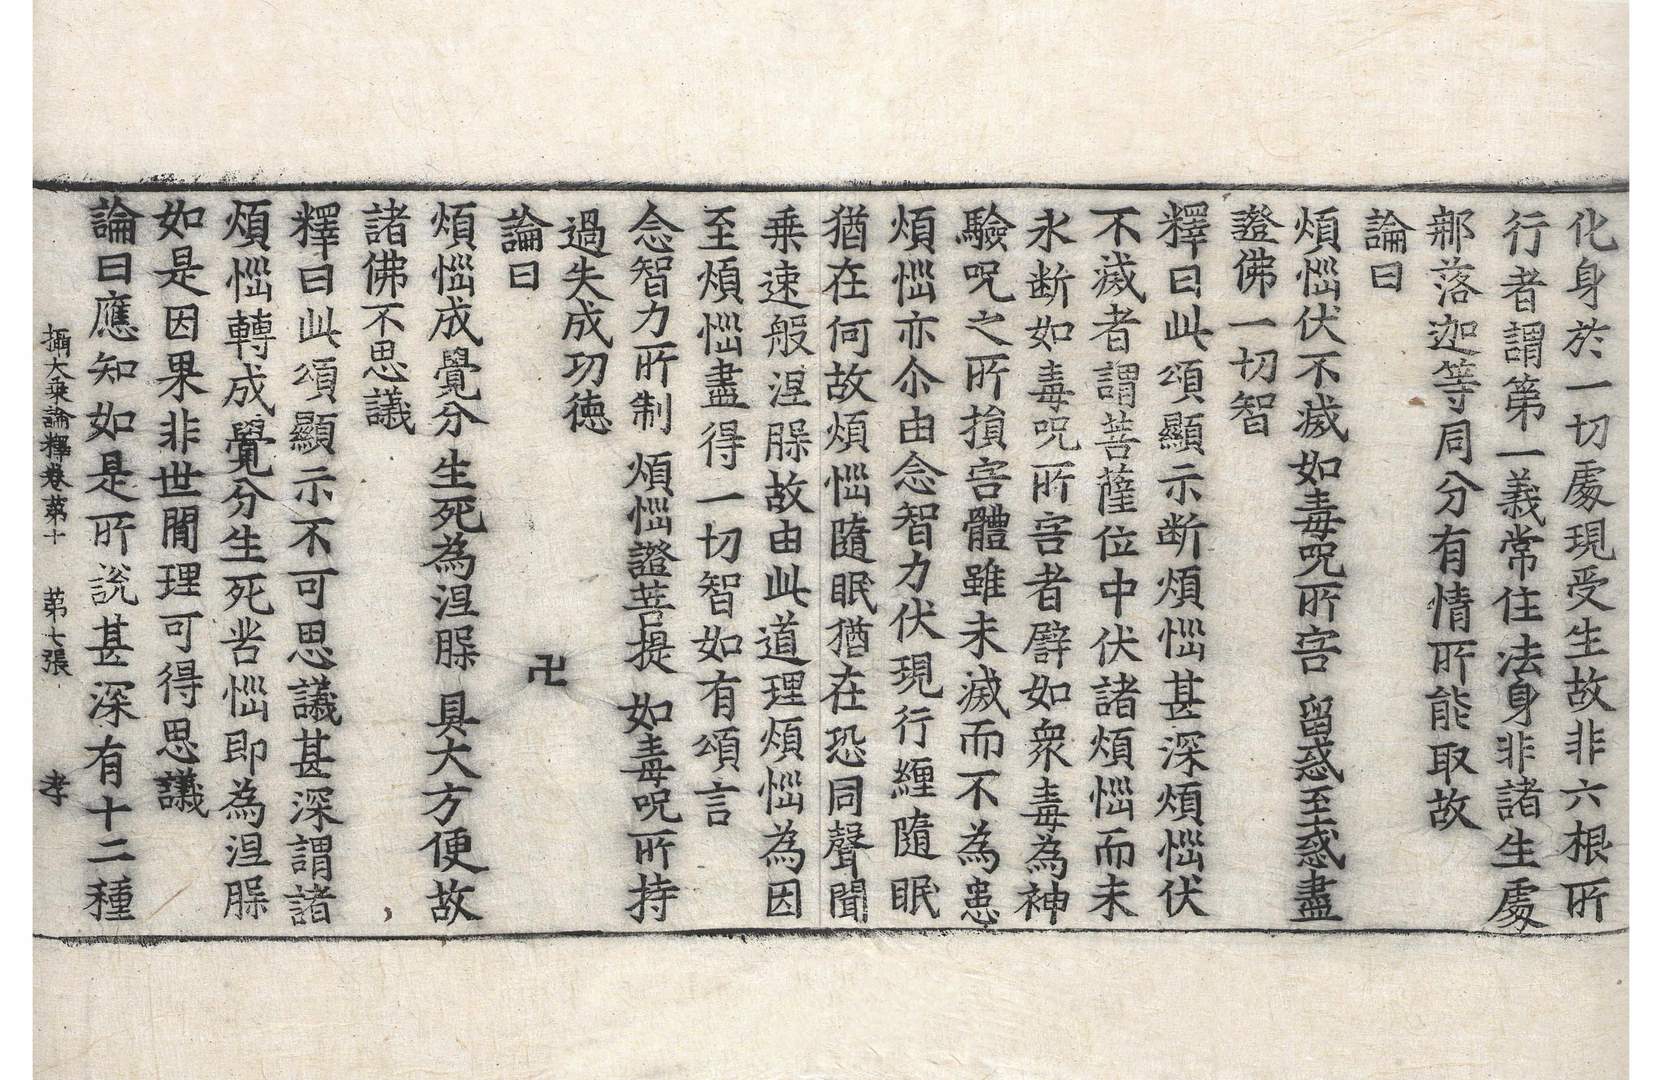 化身於一切處現受生故非六根所
行者謂第一義常住法身非諸生處
㮈落迦等同分有情所能取故
論曰
煩惱伏不滅如毒呪所害 留惑至惑盡
證佛一切智
釋曰此頌顯示断煩惱甚深煩惱伏
不滅者謂菩薩位中伏諸煩惱而未
永断如毒呪所害者譬如衆毒為神
驗呪之所損害體雖未滅而不為患
煩惱亦尒由念智力伏現行纏隨眠
猶在何故煩惱隨眠猶在恐同聲聞
乗速般涅槃故由此道理煩惱為因
至煩惱盡得一切智如有頌言
念智力所制 煩惱證菩提 如毒呪所持
過失成功徳
論曰 卍
煩惱成覺分 生死為涅槃 具大方便故
諸佛不思議
釋曰此頌顯示不可思議甚深謂諸
煩惱轉成覺分生死苦惱即為涅槃
如是因果非世間理可得思議
論曰應知如是所說甚深有十二種
攝大乗論釋卷苐十 苐七張 孝